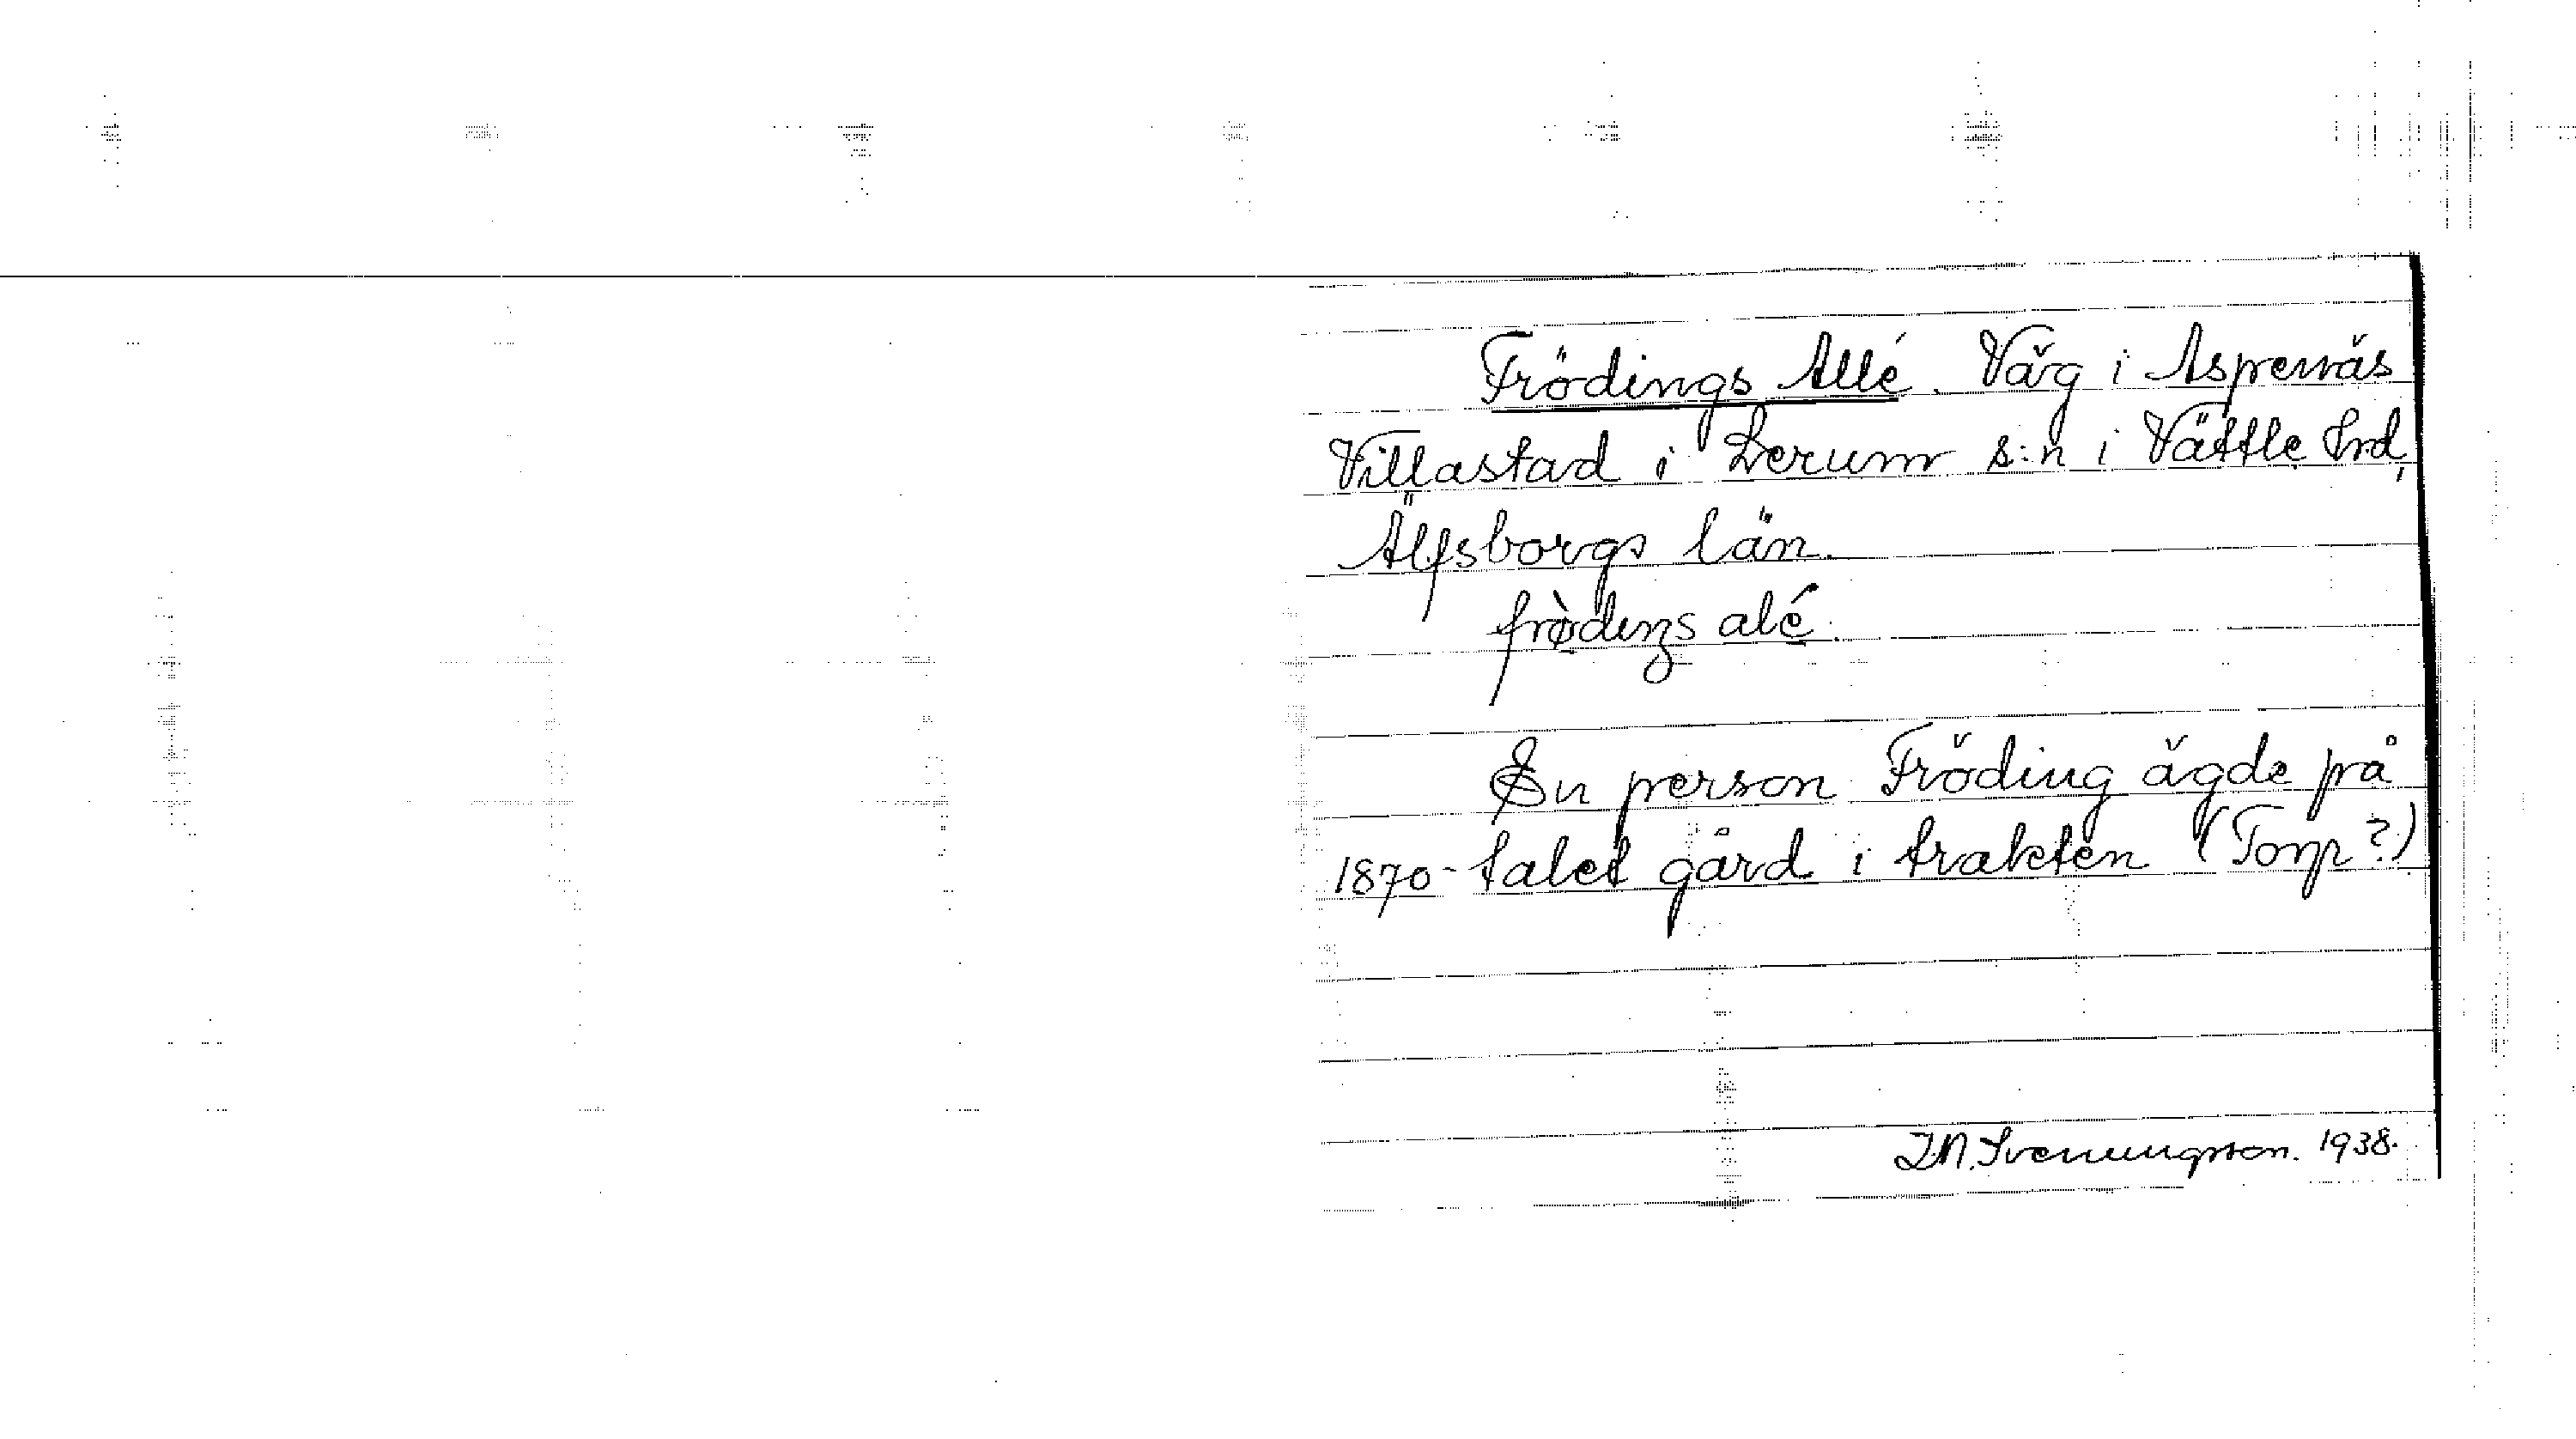 Frödings Allé. Väg i Aspenäs
Villastad i Lerum s:n i Vättle hrd,
Älfsborgs län.
frödiŋs alé.
En person Fröding ägde på
1870-talet gård i trakten (Torp?)
J.N. Svenungsson. 1938.